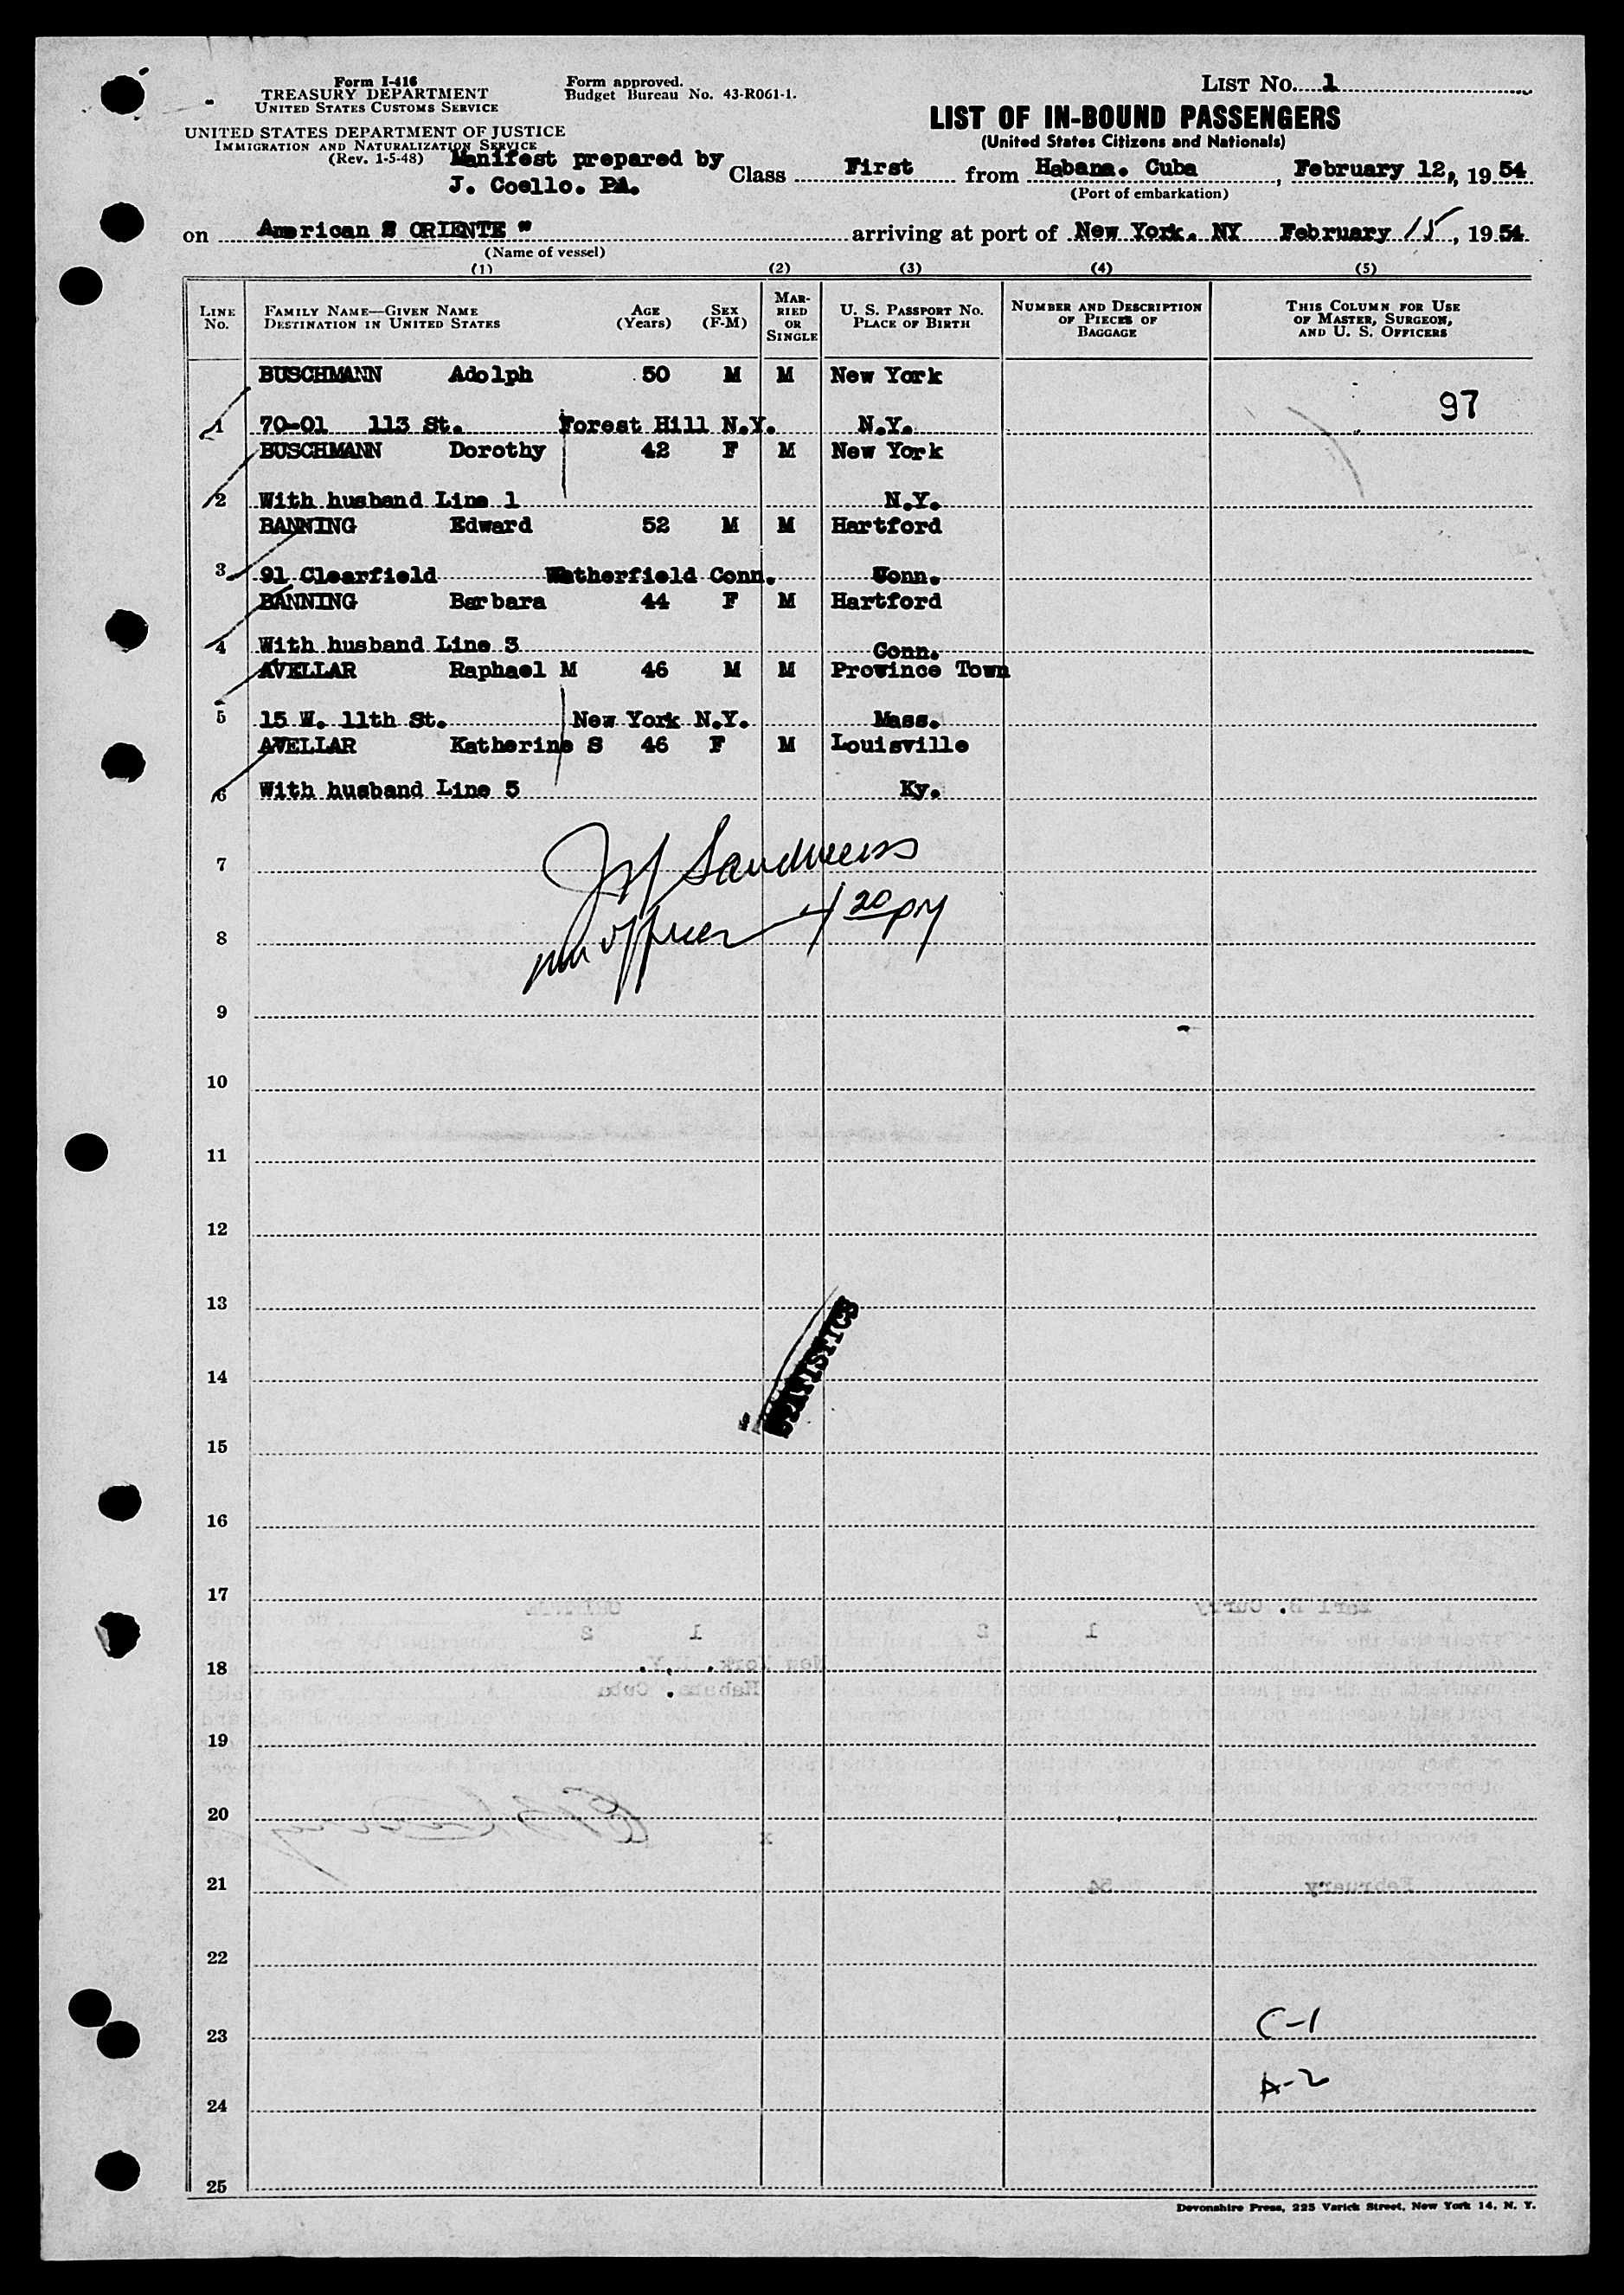 Form I-416
TREASURY DEPARTMENT
UNITED STATES CUSTOMS SERVICE
UNITED STATES DEPARTMENT OF JUSTICE
IMMIGRATION AND NATURALIZATION SERVICE
(Rev. 1-5-48)
Form approved.
Budget Bureau No. 43-R061-1.
Manifest prepared by
J. Coello. PA.
LIST NO. 1
LIST OF IN-BOUND PASSENGERS
(United States Citizens and Nationals)
Class First from Habana. Cuba, February 12, 1954
(Port of embarkation)
on American S ORIENTE " arriving at port of New York. NY February 15, 1954
(Name of vessel)
(1) (2) (3) (4) (5)
LINE No. FAMILY NAME—GIVEN NAME DESTINATION IN UNITED STATES AGE (Years) SEX (F-M) MARRIED OR SINGLE U. S. PASSPORT NO. PLACE OF BIRTH NUMBER AND DESCRIPTION OF PIECES OF BAGGAGE THIS COLUMN FOR USE OF MASTER, SURGEON, AND U. S. OFFICERS
BUSCHMANN Adolph 50 M M New York
97
1 70-01 113 St. Forest Hill N.Y. N.Y.
BUSCHMANN Dorothy 42 F M New York
2 With husband Line 1 N.Y.
BANNING Edward 52 M M Hartford
3 91 Clearfield Watherfield Conn. Conn.
BANNING Barbara 44 F M Hartford
4 With husband Line 3 Conn.
AVELLAR Raphael M 46 M M Province Town
5 15 W. 11th St. New York N.Y. Mass.
AVELLAR Katherine S 46 F M Louisville
6 With husband Line 5 Ky.
7 Sandweiss
8 officer 4 20 PM
9
10
11
12
13
STATISTICS
14
15
16
17
18
19
20
21
22
23 C-1
24 A-2
25
Devonshire Press, 225 Varick Street, New York 14, N. Y.